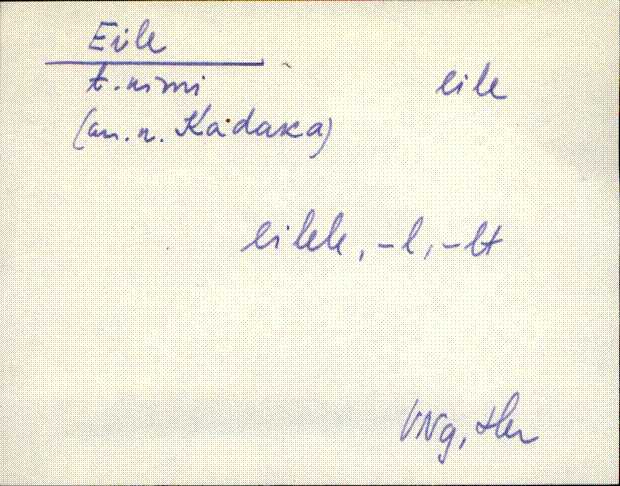 Eile
t. nimi eile
(an. n. Kadaka)
eilele, -l, -lt
VNg,